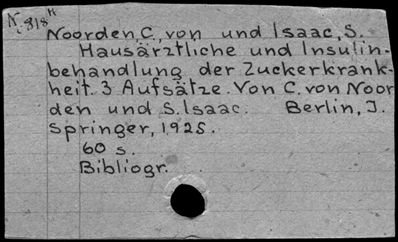 N. 818"
Noorden, C., von und Isaac, S.
Hausärztliche und Insulin-
behandlung der Zuckerkrank-
heit. 3 Aufsätze. Von C. von Noor
den und S. Isaac. Berlin, J.
Springer, 1925.
60 s.
Bibliogr.